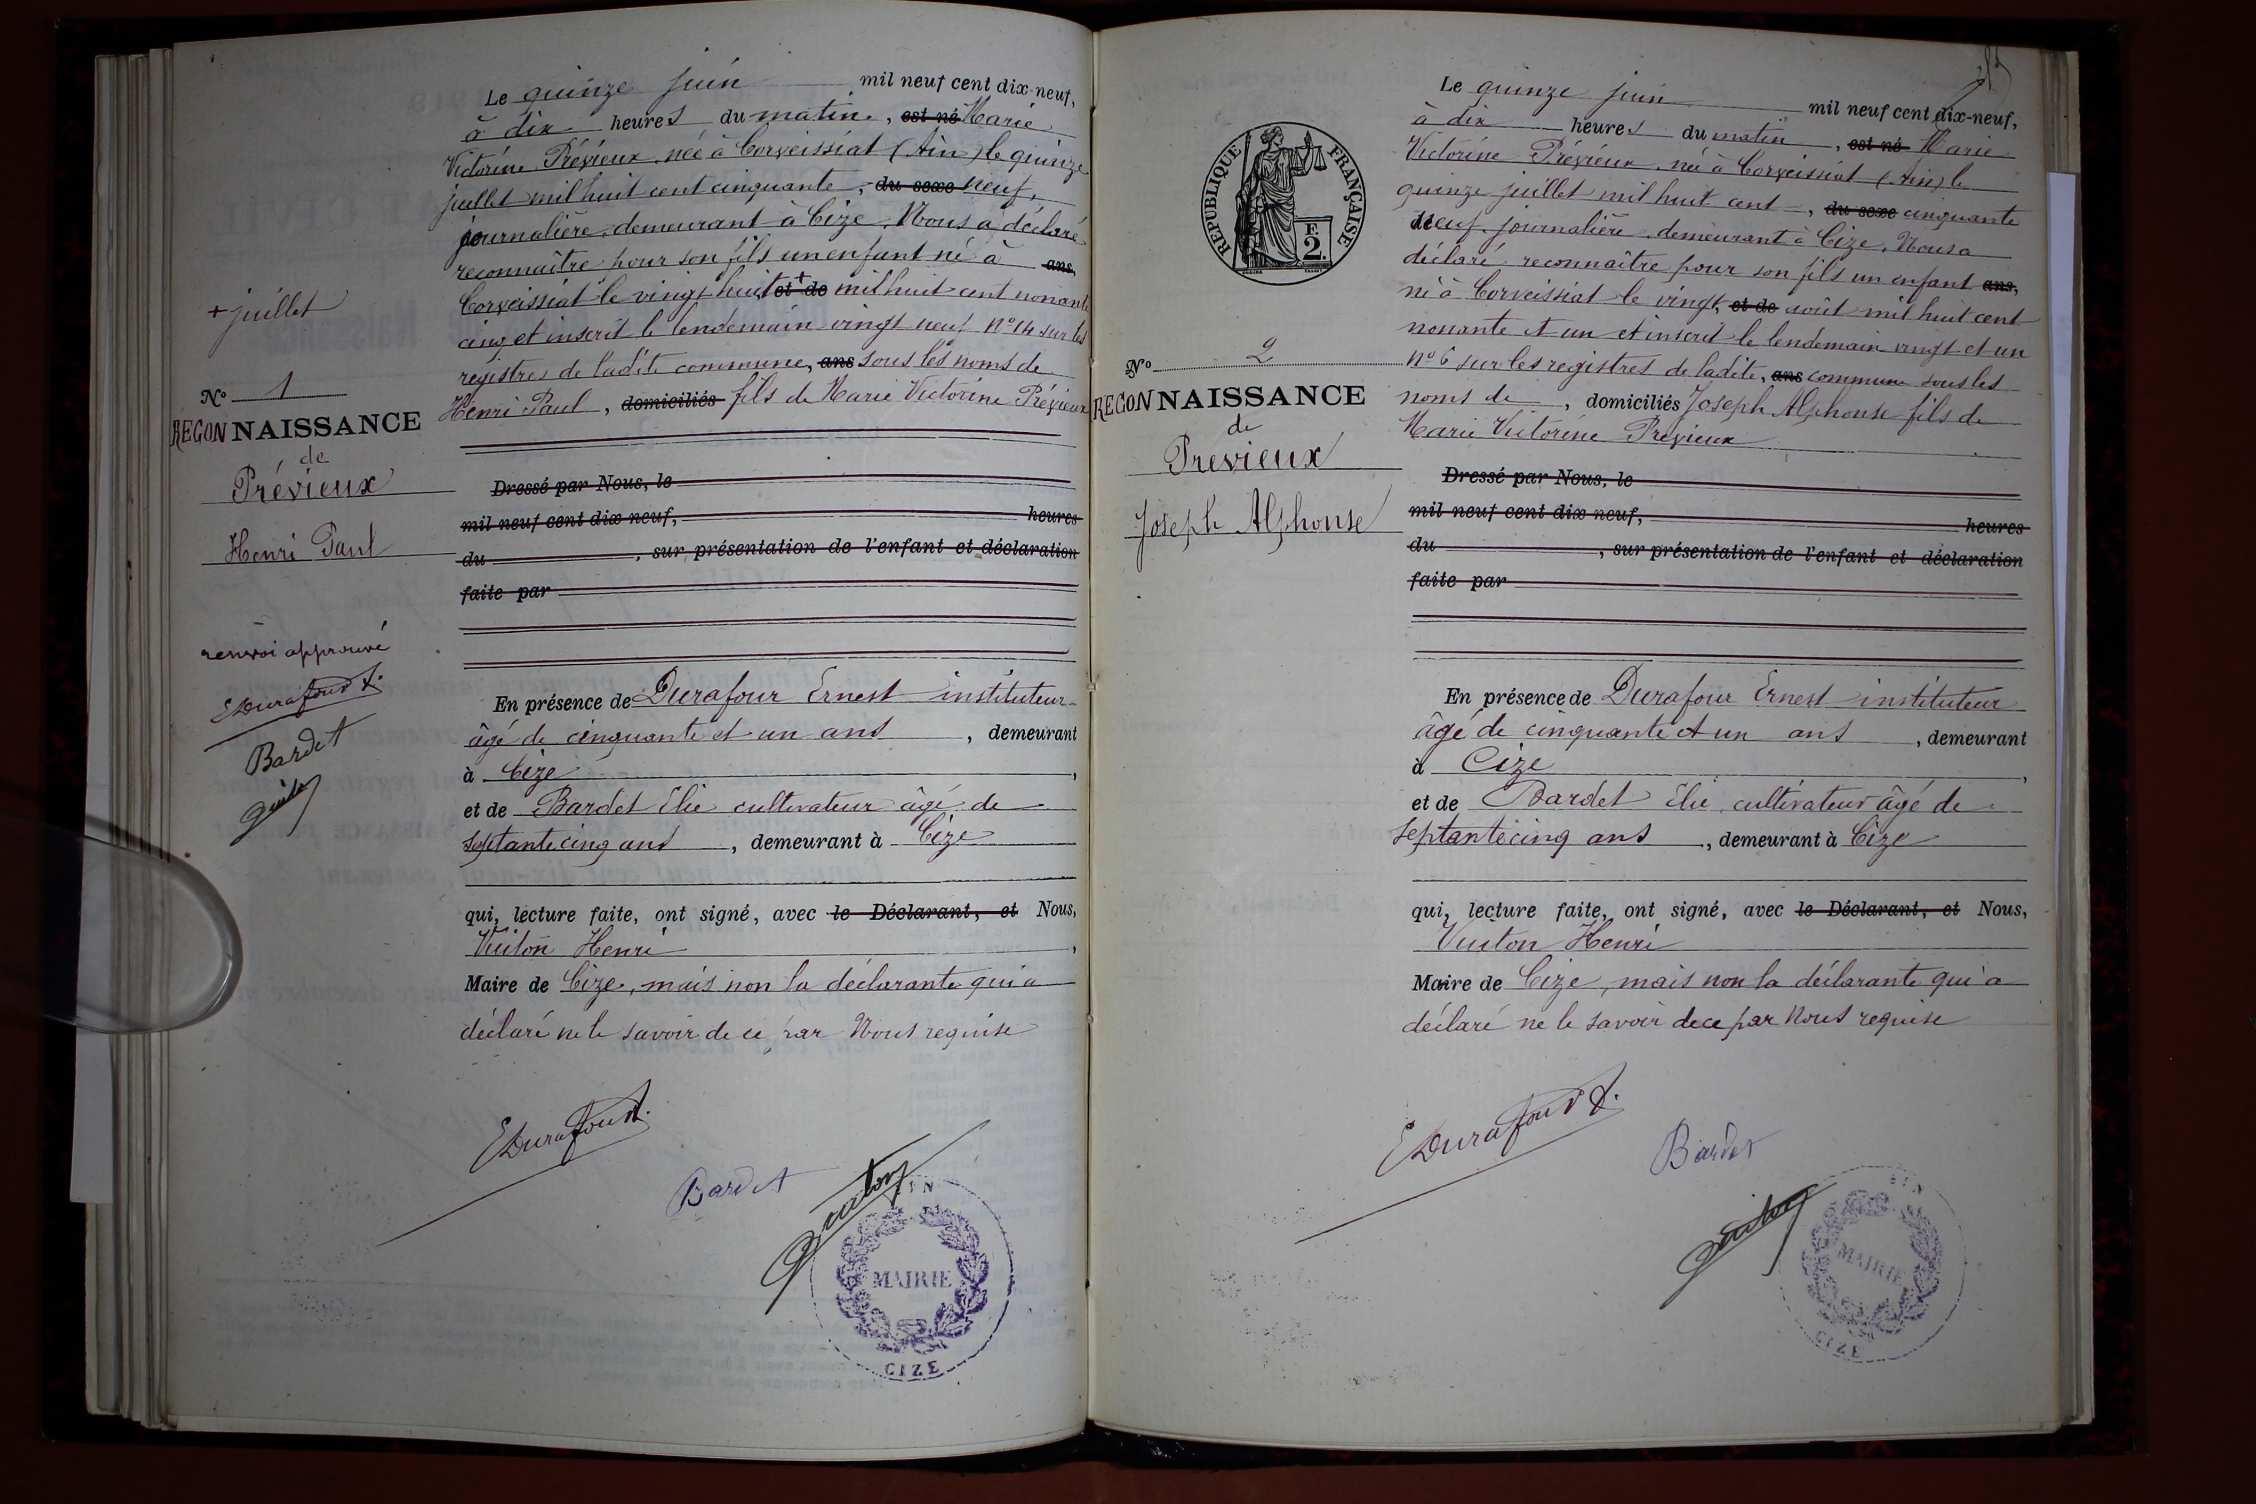 Le quinze juin mil neuf cent dix-neuf,
à dix heures du matin, est né Marie
Victorine Prévieux née à Corveissiat (Ain) le quinze
juillet mil huit cent cinquante, du sexe neuf,
journalière, demeurant à Cize, Nous a déclaré
reconnaître pour son fils un enfant né à ans,
Corveissiat le vingt huit + et de mil huit cent nonante
cinq et inscrit le lendemain vingt neuf No 14 sur les
registres de ladite commune, ans sous les noms de
Henri Paul, domiciliés fils de Marie Victorine Prévieux
+ juillet
No 1
RECONNAISSANCE
de
Prévieux
Henri Paul
Dressé par Nous, le
mil neuf cent dix neuf, heures
du , sur présentation de l'enfant et déclaration
faite par
renvoi approuvé
EDurafour
Bardet
En présence de Durafour Ernest instituteur
âgé de cinquante et un ans, demeurant
à Cize,
et de Bardet Elie cultivateur âgé de
septante cinq ans, demeurant à Cize
qui, lecture faite, ont signé, avec le Déclarant, et Nous,
Vuiton Henri,
Maire de Cize, mais non la déclarante qui a
déclaré ne le savoir de ce par Nous requise
EDurafour
Bardet
Vuiton
AIN
MAIRIE
CIZE
Le quinze juin mil neuf cent dix-neuf,
à dix heures du matin, est né Marie
Victorine Prévieux, née à Corveissiat (Ain) le
quinze juillet mil huit cent, du sexe cinquante
neuf, journalière, demeurant à Cize, Nous a
déclaré reconnaître pour son fils un enfant ans,
né à Corveissiat le vingt, et de août mil huit cent
nonante et un et inscrit le lendemain vingt et un
No 6 sur les registres de ladite, ans commune sous les
noms de, domiciliés Joseph Alphonse fils de
Marie Victorine Prévieux
RÉPUBLIQUE FRANÇAISE
E
2.
No 2
RECONNAISSANCE
de
Prévieux
Joseph Alphonse
Dressé par Nous, le
mil neuf cent dix neuf, heures
du , sur présentation de l'enfant et déclaration
faite par
En présence de Durafour Ernest instituteur
âgé de cinquante et un ans, demeurant
à Cize,
et de Bardet Elie, cultivateur âgé de
septante cinq ans, demeurant à Cize
qui, lecture faite, ont signé, avec le Déclarant, et Nous,
Vuiton Henri
Maire de Cize, mais non la déclarante qui a
déclaré ne le savoir de ce par Nous requise
EDurafour
Bardet
Vuiton
AIN
MAIRIE
CIZE